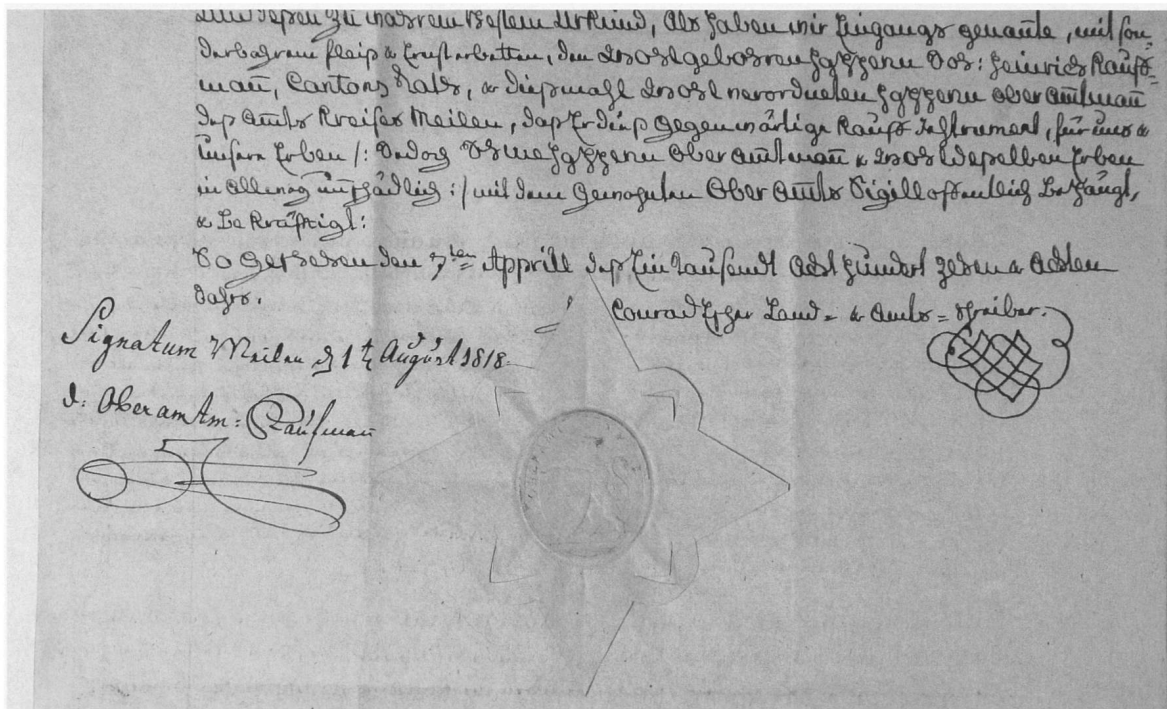 dessen zu wahrem Vestem Urkund, Als haben wir Eingangs genante, mit son=
derbahrem fleiß & Ernst erbetten, den Wohlgebohren Herren Heinrich Kauf=
man̄, Cantons Rath, & dießmahl Wohl verordneten Herren Ober Amtman̄
deß Amts Kreises Meilen, daß Er dieß gegenwärtige Kauf Instrument, für uns &
Unsere Erben /: Jedoch Herren Ober Amtman̄ & Wohldeßelben Erben
in Allweg unschädlich :/ mit dem Gewohnten Ober Amts Sigill offentlich Behängt,
& Bekräftigt:
So Geschehen den 7ten Apprill deß Ein Tausendt Acht Hundert Zehen & Achten
Jahrs.
Conrad Escher Land= & Amts=schreiber.
Signatum Meilen d 1t August 1818.
d: Oberamtm: Kaufman̄